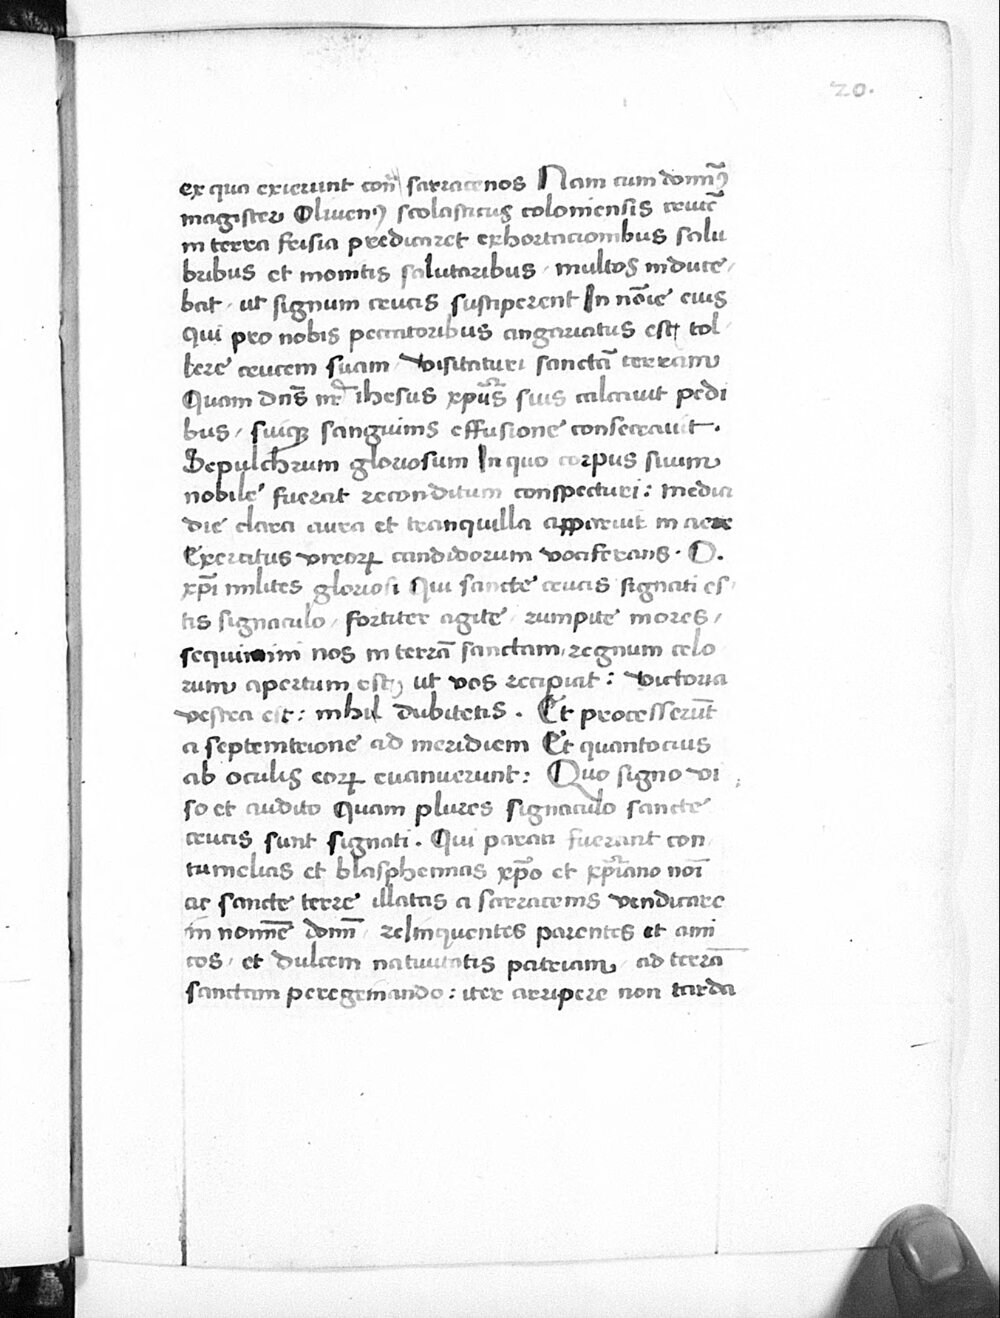 20.
ex qua exierunt con̄ sarracenos Nam cum domn̄ꝰ
magister Oliuenꝰ scolasticus coloniensis crucē
in terra frisia predicaret exhortacionibus salu
bribus et monitis salutaribus / multos induce/
bat / ut signum crucis susciperent In noīe eius
Qui pro nobis peccatoribus angariatus est tol/
lere crucem suam / visitaturi sanctā terram
Quam dn̄s nr̄ ihesus xp̄us suis calcauit pedi
bus / suiqꝫ sanguinis effusione consecrauit.
Sepulchrum gloriosum In quo corpus suum
nobile fuerat reconditum conspecturi: media
die clara aura et tranquilla apparuit in aere
Exercitus viroꝝ candidorum vociferans. O.
xp̄i milites gloriosi Qui sancte crucis signati es/
tis signaculo / fortiter agite / rumpite mores /
sequimini nos in terrā sanctam / regnum celo
rum apertum est, ut vos recipiat: victoria
vestra est: nihil dubitetis. Et processerūt
a septemtrione ad meridiem Et quantocius
ab oculis eoꝝ euanuerunt: Quo signo vi
so et audito Quam plures signaculo sancte
crucis sunt signati. Qui parati fuerant con
tumelias et blasphemias xp̄o et xp̄iano noī
ac sancte terre illatas a sarracenis vendicare
in nomīe domī / relinquentes parentes et ami
cos / et dulcem natiuitatis patriam / ad terrā
sanctam peregrinando: iter arripere non tarda